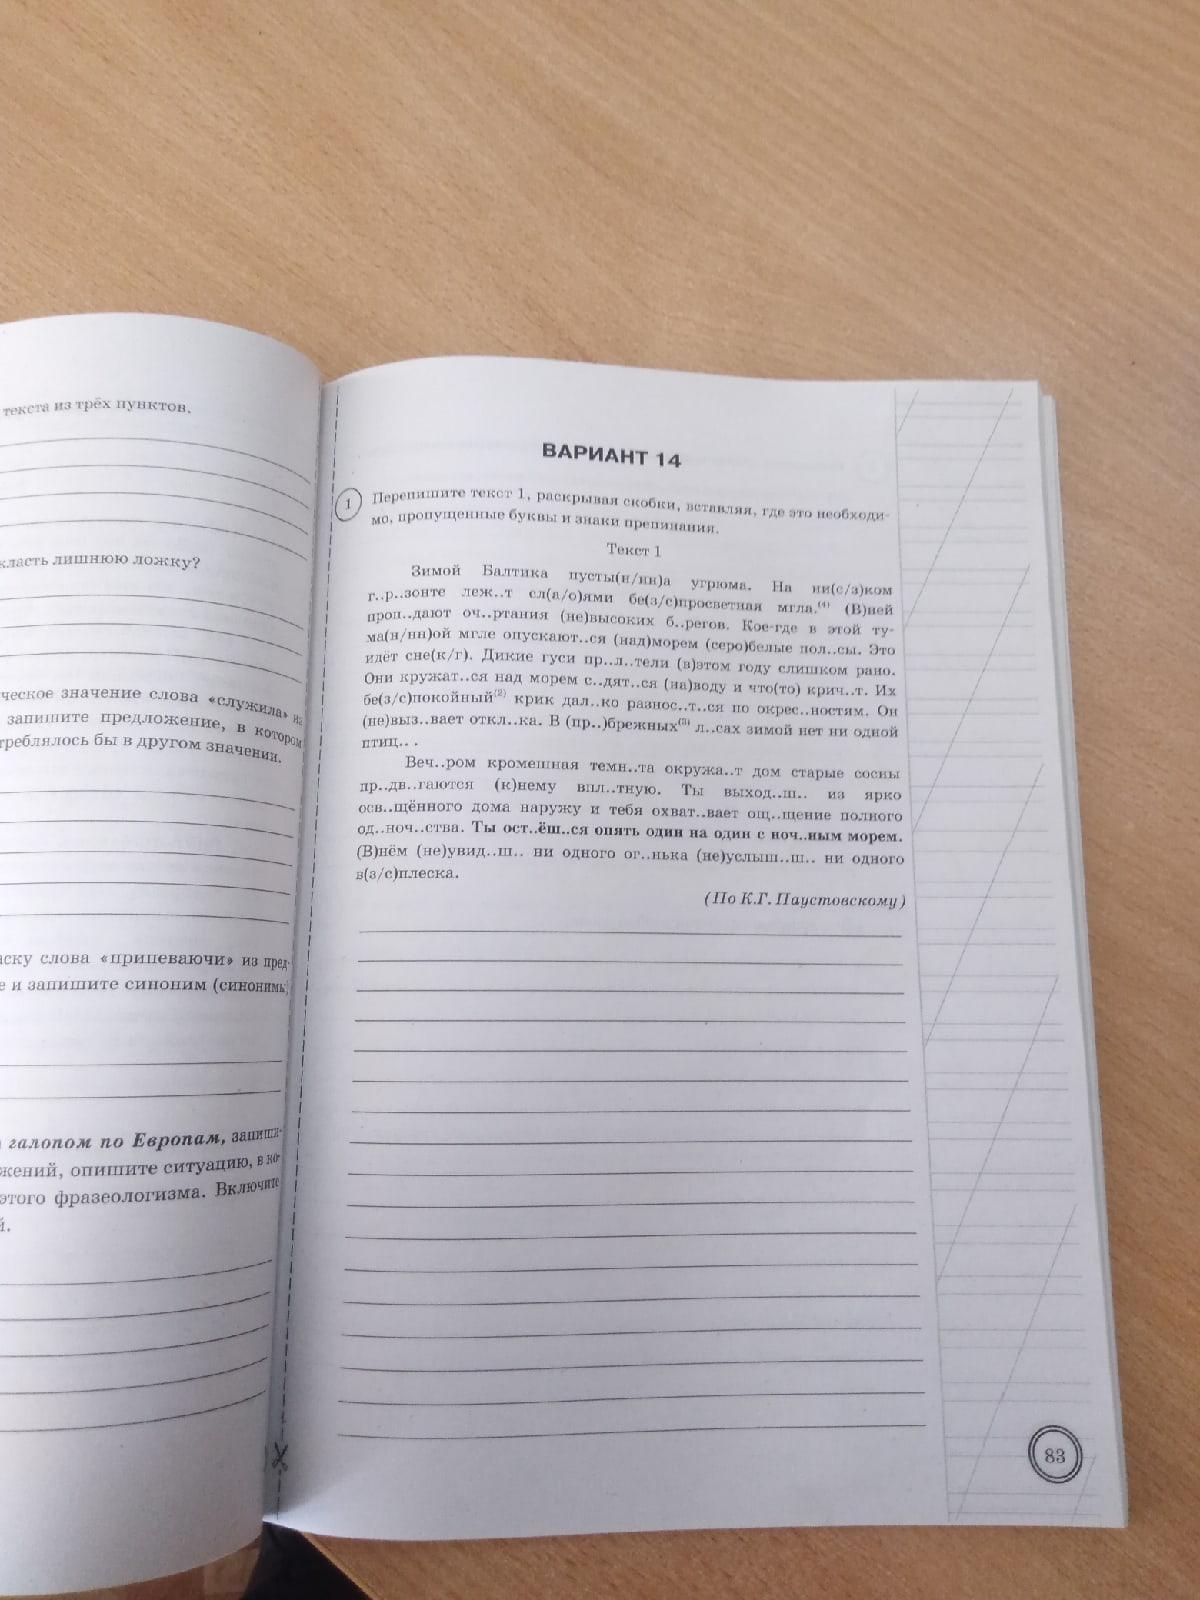 текста из трёх пунктов.
класть лишнюю ложку?
ческое значение слова «служила» из
запишите предложение, в котором
треблялось бы в другом значении.
аску слова «припеваючи» из пред-
е и запишите синоним (синонимы)
галопом по Европам, запиши-
жений, опишите ситуацию, в ко-
этого фразеологизма. Включите
й.
ВАРИАНТ 14
1 Перепишите текст 1, раскрывая скобки, вставляя, где это необходи-
мо, пропущенные буквы и знаки препинания.
Текст 1
Зимой Балтика пусты(н/нн)а угрюма. На ни(с/з)ком
г..р..зонте леж..т сл(а/о)ями бе(з/с)просветная мгла.(4) (В)ней
проп..дают оч..ртания (не)высоких б..регов. Кое-где в этой ту-
ма(н/нн)ой мгле опускают..ся (над)морем (серо)белые пол..сы. Это
идёт сне(к/г). Дикие гуси пр..л..тели (в)этом году слишком рано.
Они кружат..ся над морем с..дят..ся (на)воду и что(то) крич..т. Их
бе(з/с)покойный(2) крик дал..ко разнос..т..ся по окрес..ностям. Он
(не)выз..вает откл..ка. В (пр..)брежных(3) л..сах зимой нет ни одной
птиц.. .
Веч..ром кромешная темн..та окружа..т дом старые сосны
пр..дв..гаются (к)нему впл..тную. Ты выход..ш.. из ярко
осв..щённого дома наружу и тебя охват..вает ощ..щение полного
од..ноч..ства. Ты ост..ёш..ся опять один на один с ноч..ным морем.
(В)нём (не)увид..ш.. ни одного ог..нька (не)услыш..ш.. ни одного
в(з/с)плеска.
(По К.Г. Паустовскому)
83